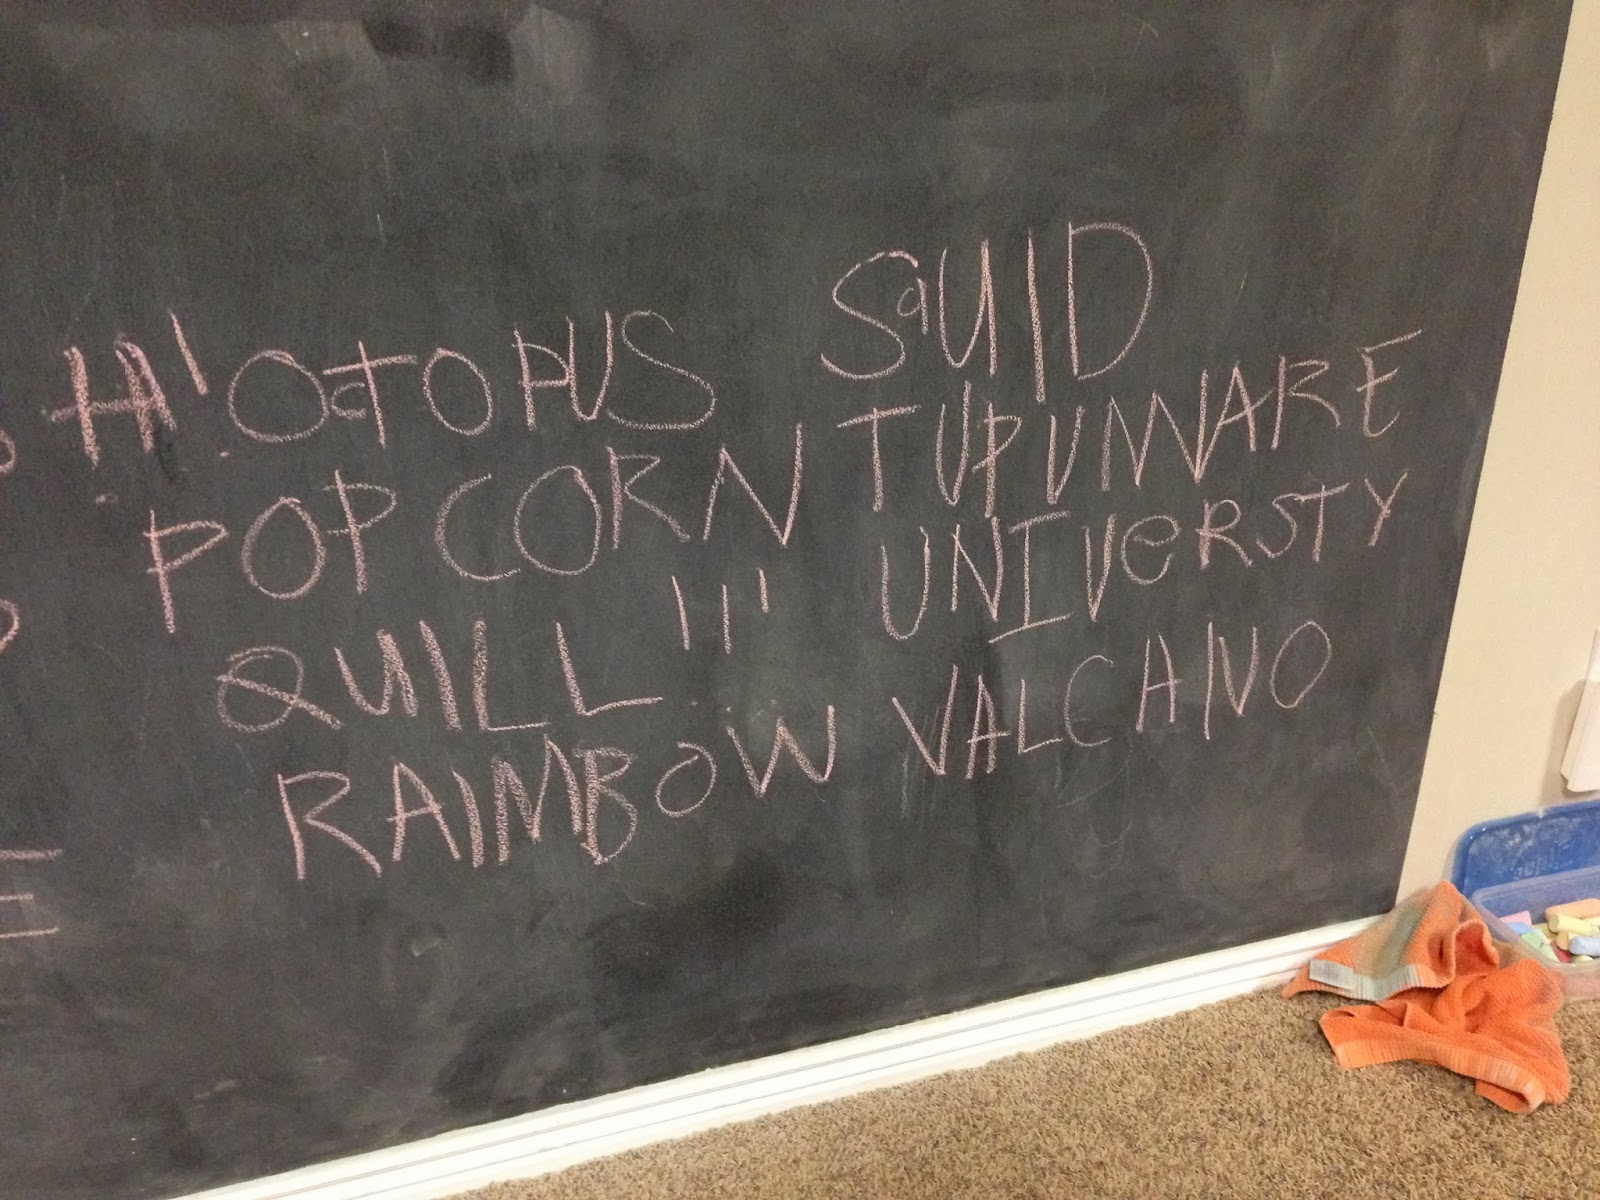 HI! OcTOPUS SqUID
POPCORN TUPUWARE
QUILL !!! UNIVeRSTY
RAINBOW VALCANO